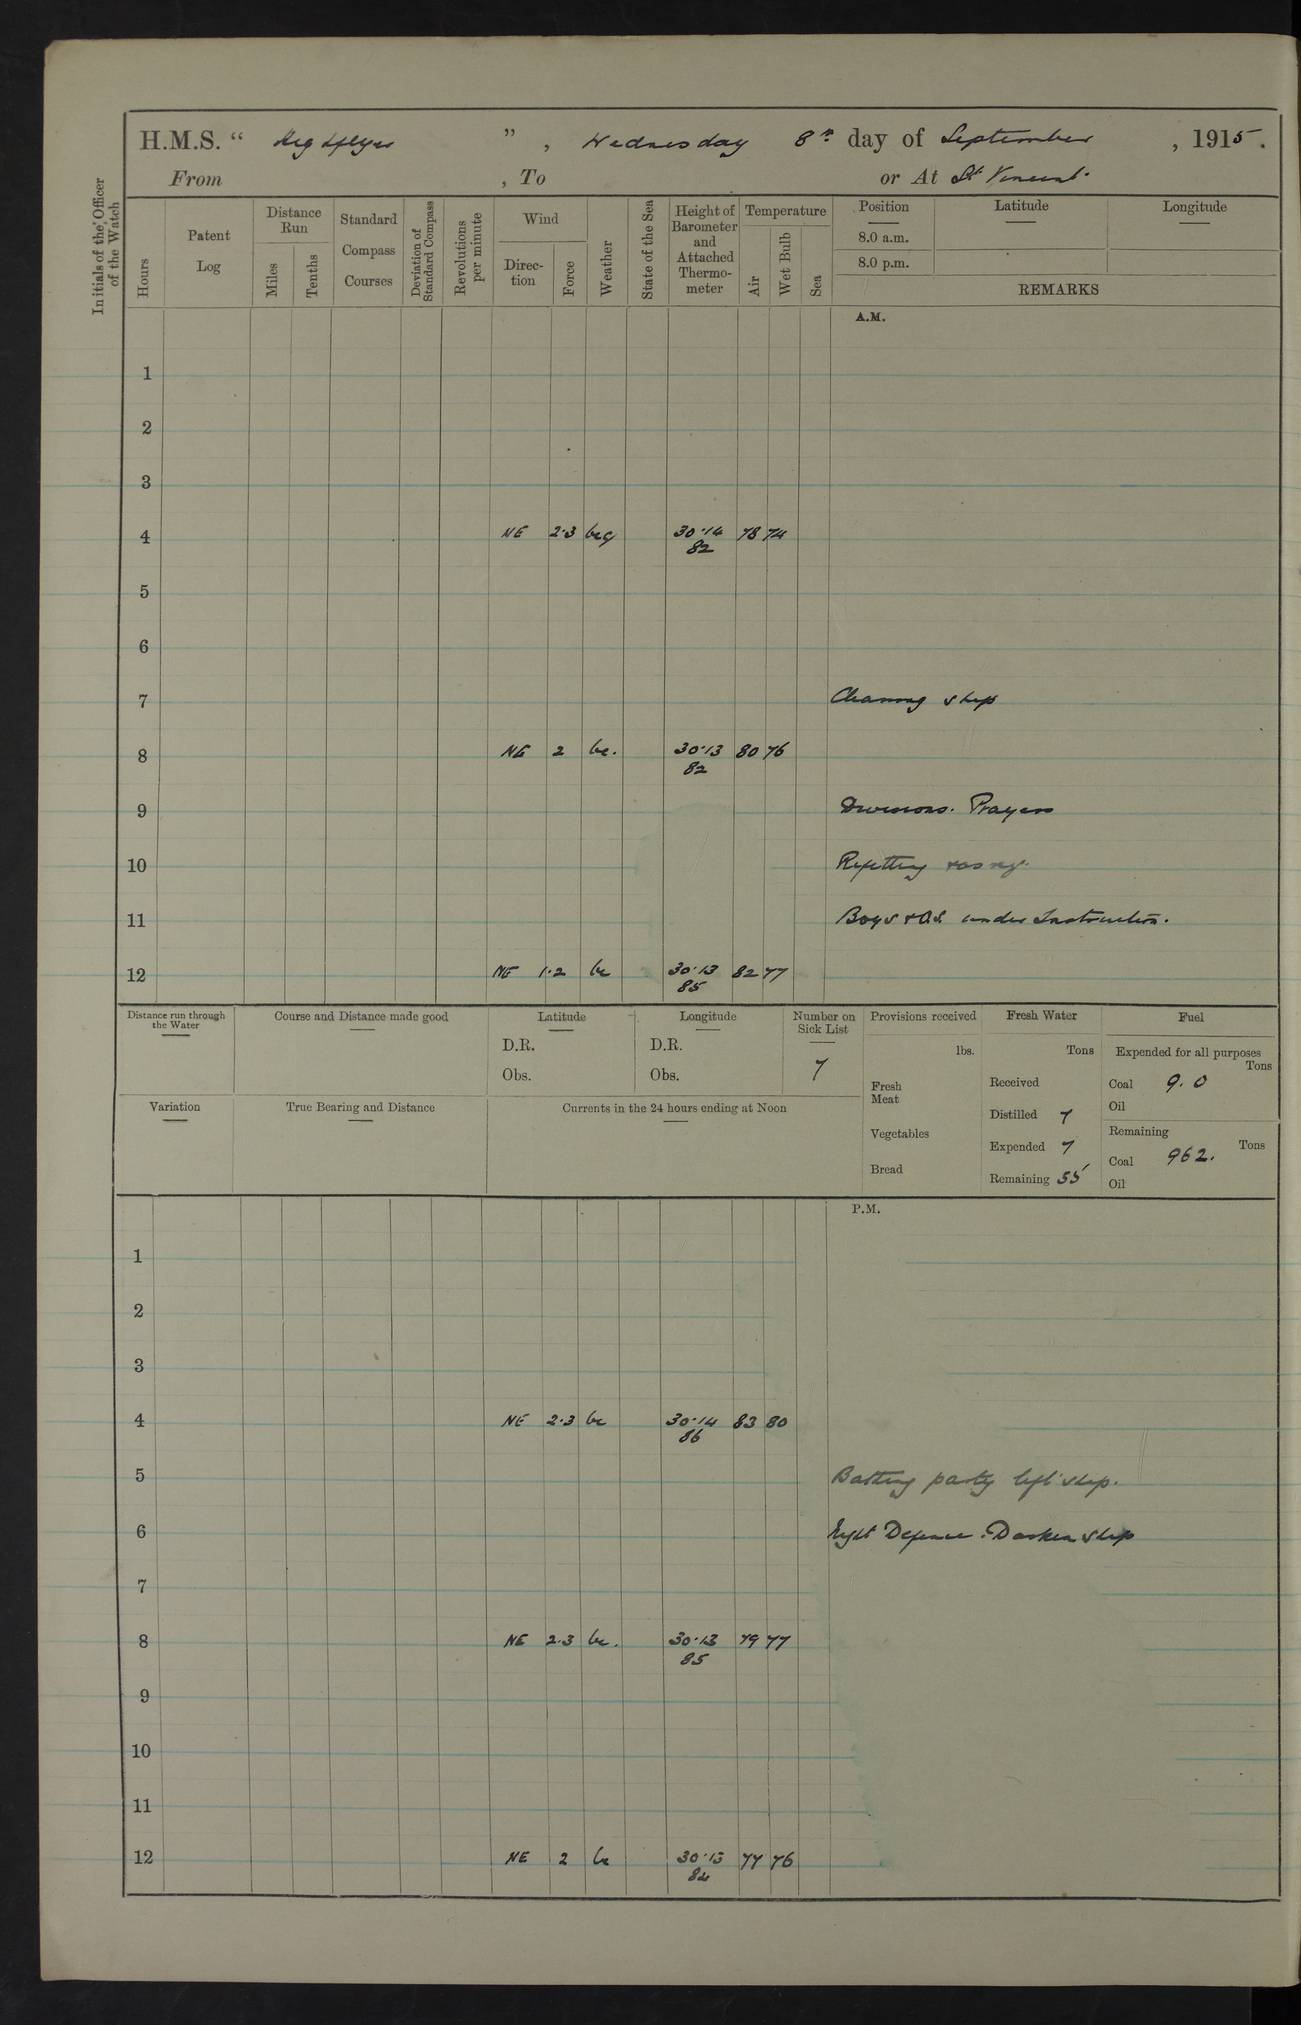 H.M.S. " Highflyer ", Wednesday 8th day of September, 1915.
From , To or At St Vincent.
Initials of the Officer of the Watch
Hours Patent Log Distance Run Miles Tenths Standard Compass Courses Deviation of Standard Compass Revolutions per minute Wind Direc-tion Force Weather State of the Sea Height of Barometer and Attached Thermo-meter Temperature Air Wet Bulb Sea Position Latitude Longitude
8.0 a.m.
8.0 p.m.
REMARKS
A.M.
1
2
3
4 NE 2.3 bcq 30.14 78 74
82
5
6
7 Cleaning ship
8 NE 2 bc. 30.13 80 76
82
9 Divisions. Prayers
10 Refitting
11 Boys & O.S. under Instruction.
12 NE 1.2 bc 30.13 82 77
85
Distance run through the Water Course and Distance made good Latitude Longitude Number on Sick List Provisions received Fresh Water Fuel
D.R. D.R. lbs. Tons Expended for all purposes
Tons
Obs. Obs. 7 Fresh Meat Received Coal 9.0
Variation True Bearing and Distance Currents in the 24 hours ending at Noon Distilled 7 Oil
Vegetables Expended 7 Remaining Tons
Coal 962.
Bread Remaining 55 Oil
P.M.
1
2
3
4 NE 2.3 bc 30.14 83 80
86
5 Bathing party left ship.
6 Night Defence. Darken ship
7
8 NE 2.3 bc. 30.13 79 77
85
9
10
11
12 NE 2 bc 30.13 77 76
84